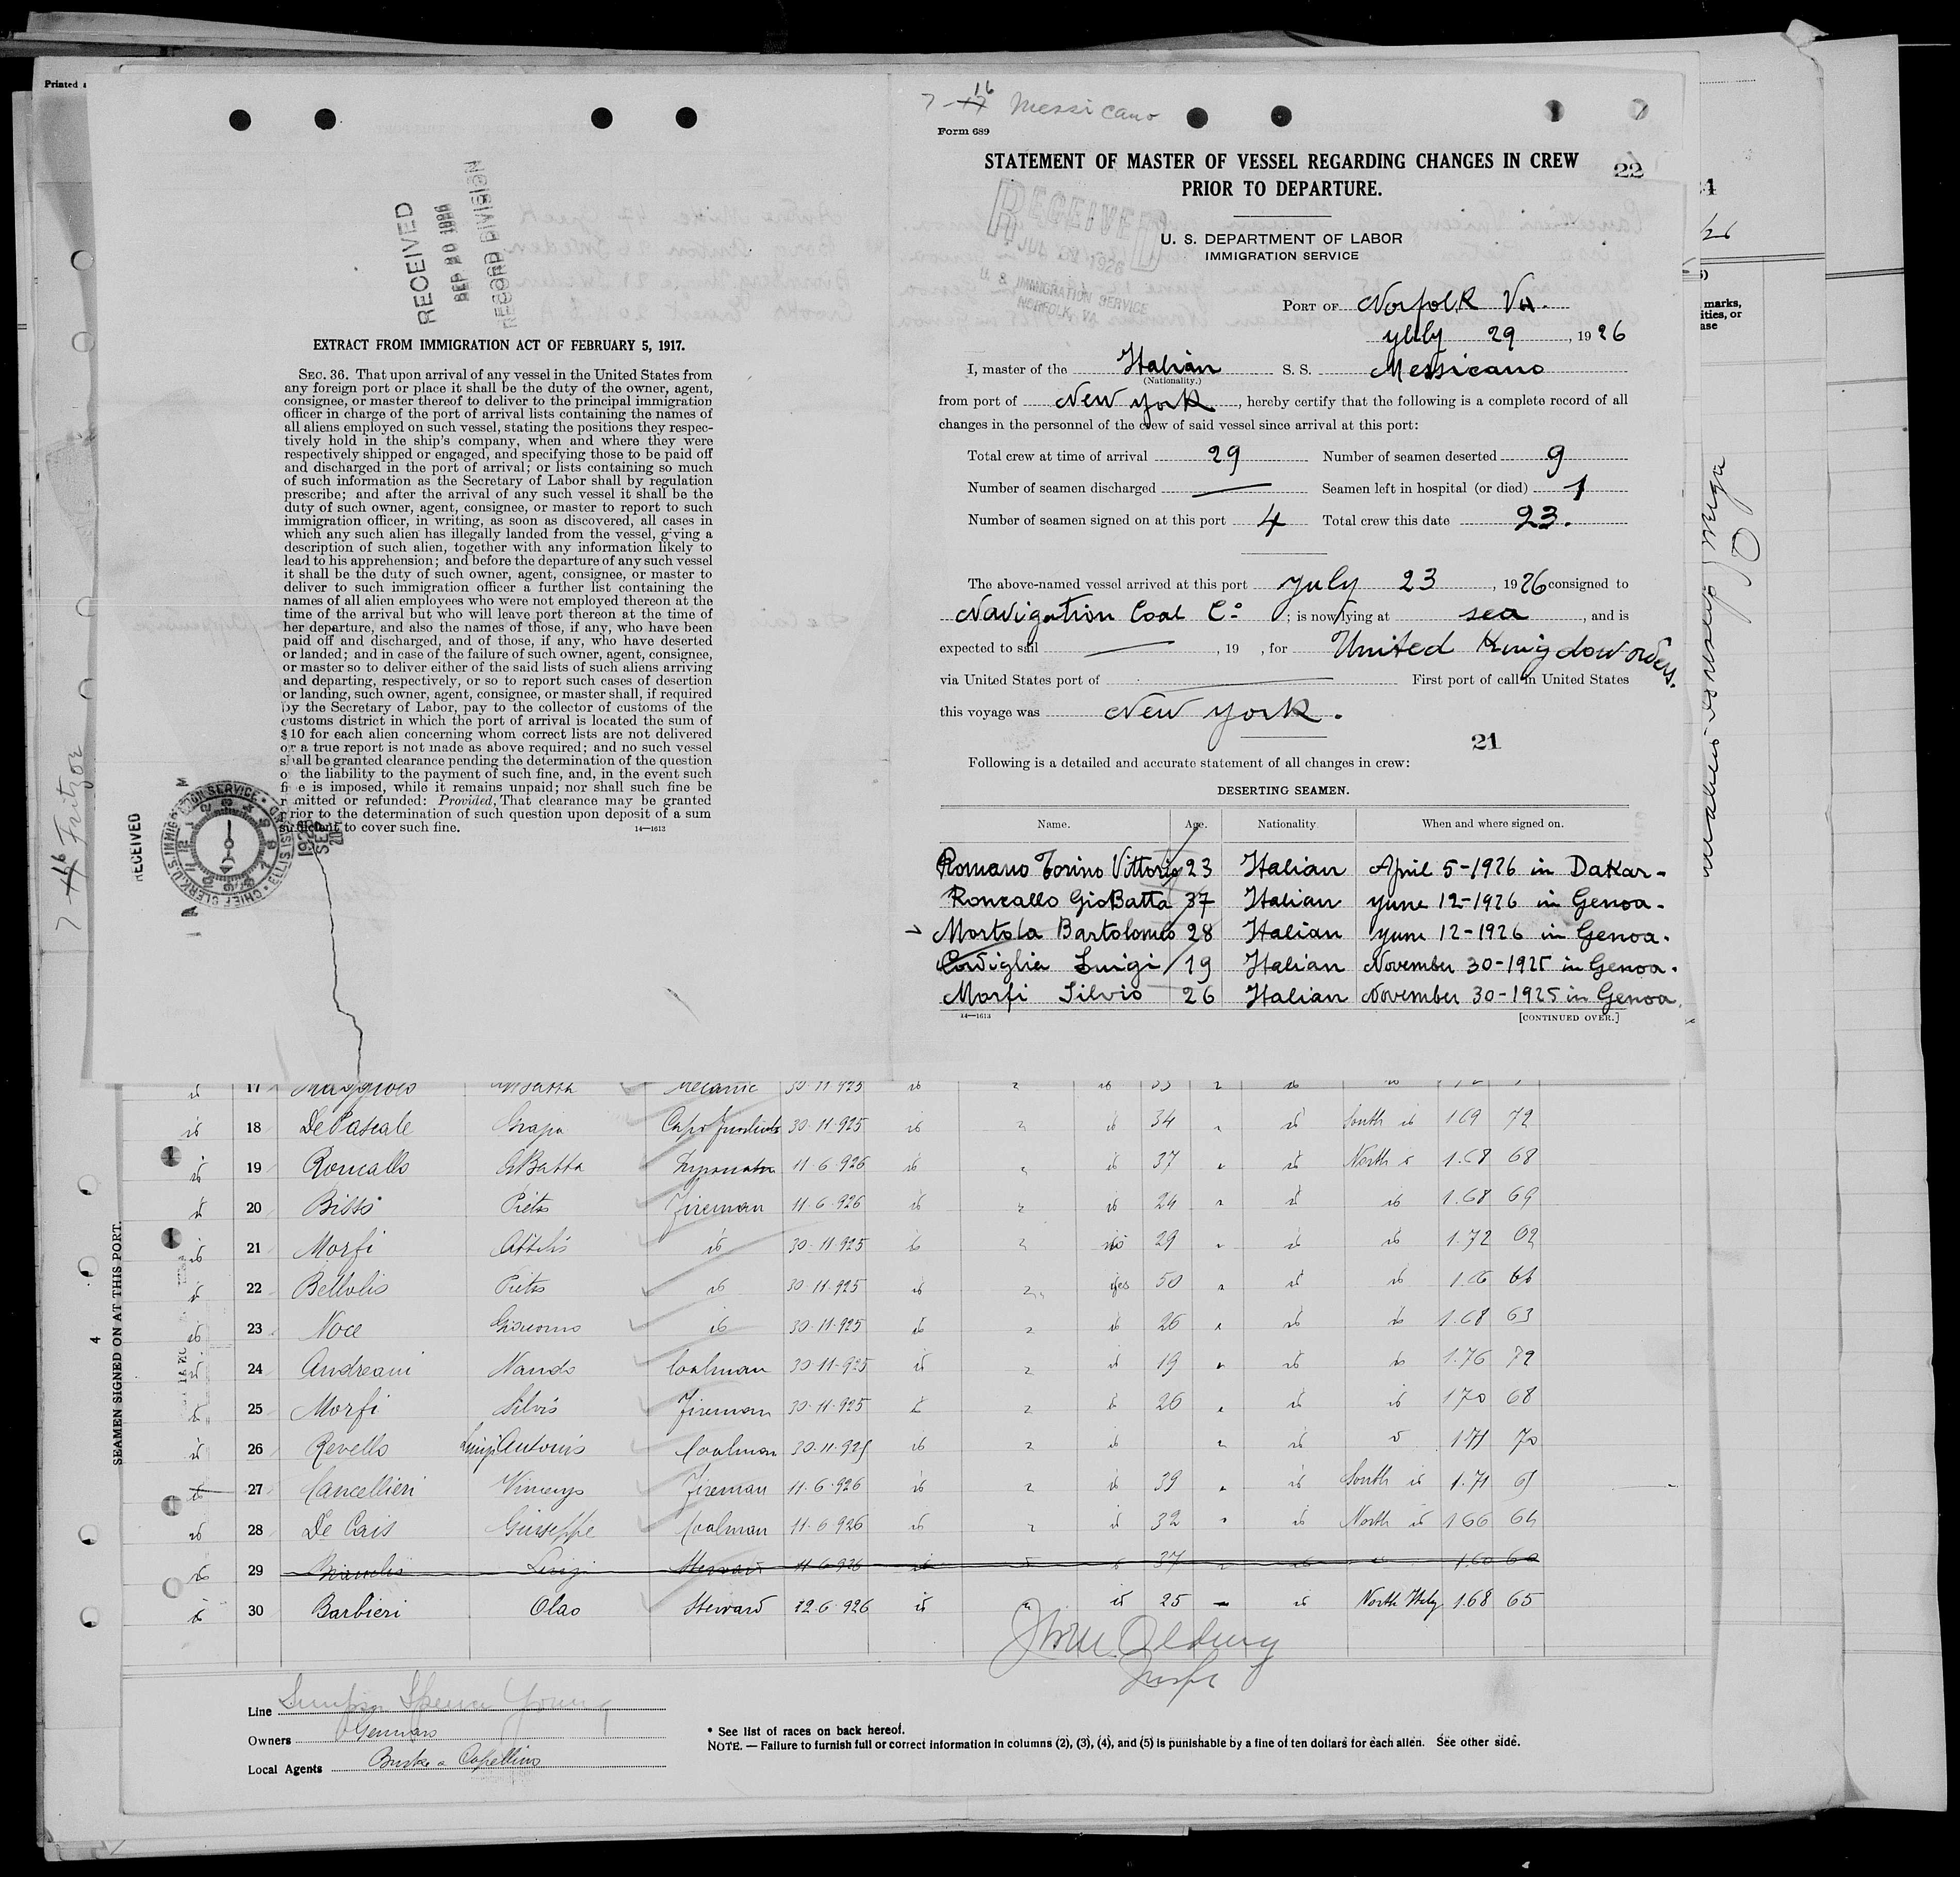 Printed
7-16 Fritzoe
RECEIVED
SEP 20 1926
RECORD DIVISION
EXTRACT FROM IMMIGRATION ACT OF FEBRUARY 5, 1917.
SEC. 36. That upon arrival of any vessel in the United States from
any foreign port or place it shall be the duty of the owner, agent,
consignee, or master thereof to deliver to the principal immigration
officer in charge of the port of arrival lists containing the names of
all aliens employed on such vessel, stating the positions they respec-
tively hold in the ship's company, when and where they were
respectively shipped or engaged, and specifying those to be paid off
and discharged in the port of arrival; or lists containing so much
of such information as the Secretary of Labor shall by regulation
prescribe; and after the arrival of any such vessel it shall be the
duty of such owner, agent, consignee, or master to report to such
immigration officer, in writing, as soon as discovered, all cases in
which any such alien has illegally landed from the vessel, giving a
description of such alien, together with any information likely to
lead to his apprehension; and before the departure of any such vessel
it shall be the duty of such owner, agent, consignee, or master to
deliver to such immigration officer a further list containing the
names of all alien employees who were not employed thereon at the
time of the arrival but who will leave port thereon at the time of
her departure, and also the names of those, if any, who have been
paid off and discharged, and of those, if any, who have deserted
or landed; and in case of the failure of such owner, agent, consignee,
or master so to deliver either of the said lists of such aliens arriving
and departing, respectively, or so to report such cases of desertion
or landing, such owner, agent, consignee, or master shall, if required
by the Secretary of Labor, pay to the collector of customs of the
customs district in which the port of arrival is located the sum of
$10 for each alien concerning whom correct lists are not delivered
or a true report is not made as above required; and no such vessel
shall be granted clearance pending the determination of the question
of the liability to the payment of such fine, and, in the event such
fine is imposed, while it remains unpaid; nor shall such fine be
remitted or refunded: Provided, That clearance may be granted
prior to the determination of such question upon deposit of a sum
sufficient to cover such fine.
14—1613
RECEIVED
7-16 Messicano
Form 689
STATEMENT OF MASTER OF VESSEL REGARDING CHANGES IN CREW
PRIOR TO DEPARTURE.
22
RECEIVED
U. S. IMMIGRATION SERVICE
NORFOLK, VA
U. S. DEPARTMENT OF LABOR
IMMIGRATION SERVICE
PORT OF Norfolk Va.
July 29, 1926
I, master of the Italian S. S. Messicano
(Nationality.)
from port of New York, hereby certify that the following is a complete record of all
changes in the personnel of the crew of said vessel since arrival at this port:
Total crew at time of arrival 29 Number of seamen deserted 9
Number of seamen discharged — Seamen left in hospital (or died) 1
Number of seamen signed on at this port 4 Total crew this date 23.
The above-named vessel arrived at this port July 23, 1926 consigned to
Navigation Coal Co; is now lying at sea, and is
expected to sail —, 19 , for United Kingdom orders.
via United States port of — First port of call in United States
this voyage was New York.
21
Following is a detailed and accurate statement of all changes in crew:
DESERTING SEAMEN.
Name. Age. Nationality When and where signed on.
Romano Torino Vittorio 23 Italian April 5-1926 in Dakar-
Roncallo GioBatta 37 Italian June 12-1926 in Genoa.
Mortola Bartolomeo 28 Italian June 12-1926 in Genoa.
Cordiglia Luigi 19 Italian November 30-1925 in Genoa.
Morfi Silvio 26 Italian November 30-1925 in Genoa.
14—1613
[CONTINUED OVER.]
marks,
ities, or
ase
4
SEAMEN SIGNED ON AT THIS PORT.
17 30-11-925
18 De Pascale 30-11-925 34 South 1.69 72
19 Roncallo GBatta 11-6-926 37 North 1.68 68
20 Bisso Pietro Fireman 11-6-926 24 1.68 69
21 Morfi Attilio 30-11-925 29 1.72
22 Pietro 30-11-925 yes 50 66
23 Noce Giacomo 30-11-925 26 1.68 63
24 Andreani Nando Coalman 30-11-925 19 1.76 72
25 Morfi Silvio Fireman 30-11-925 26 170 68
26 Revello Luigi Antonio Coalman 30-11-925 1.71 70
27 Cancellieri Vincenzo Fireman 11-6-926 39 South 1.71
28 De Cais Giuseppe Coalman 11-6-926 32 North 166
29 Luigi Steward 11-6-926 37 1.60 60
30 Barbieri Olao Steward 12-6-926 25 North Italy 1.68 65
Line Simpson Spence Young
Owners Gennaro
Local Agents
* See list of races on back hereof.
NOTE.—Failure to furnish full or correct information in columns (2), (3), (4), and (5) is punishable by a fine of ten dollars for each alien. See other side.